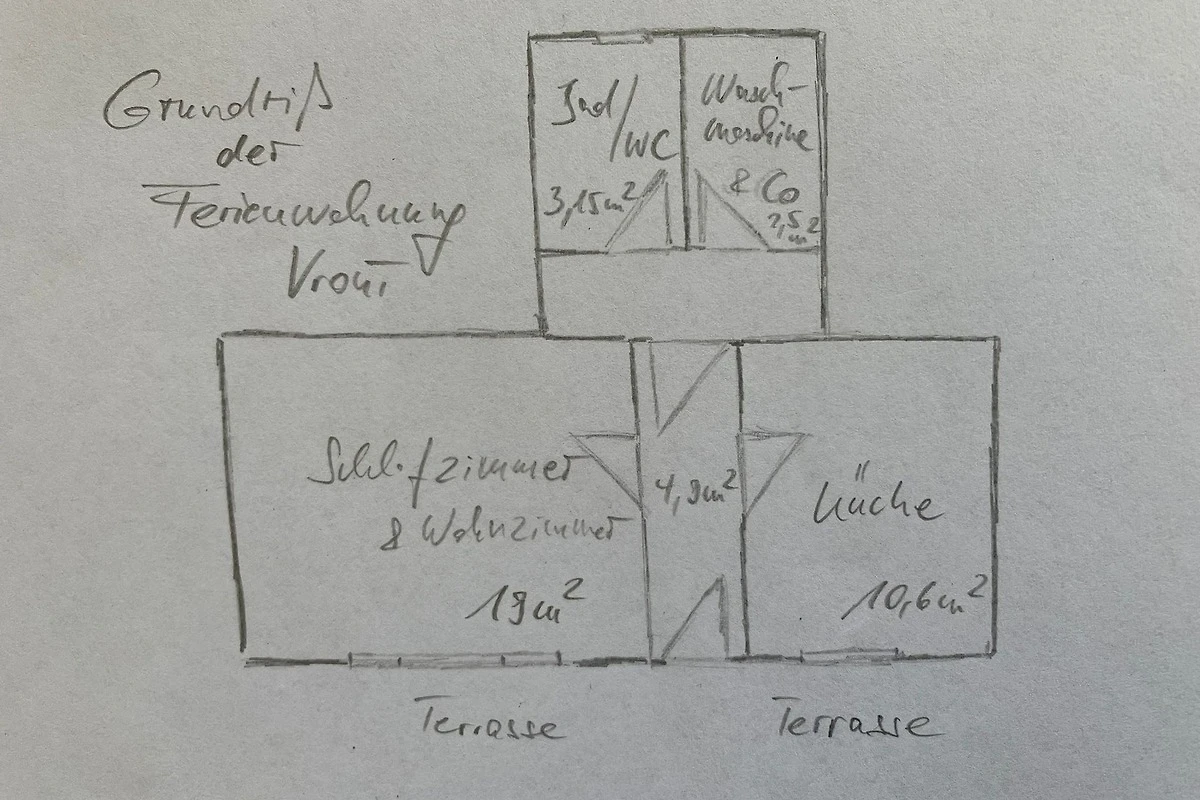 Grundriß
der
Ferienwohnung
Vroni
Bad/
WC
3,15m²
Wasch-
maschine
& Co
2,5
m²
Schlafzimmer
& Wohnzimmer
19m²
4,9m²
Küche
10,6m²
Terrasse
Terrasse